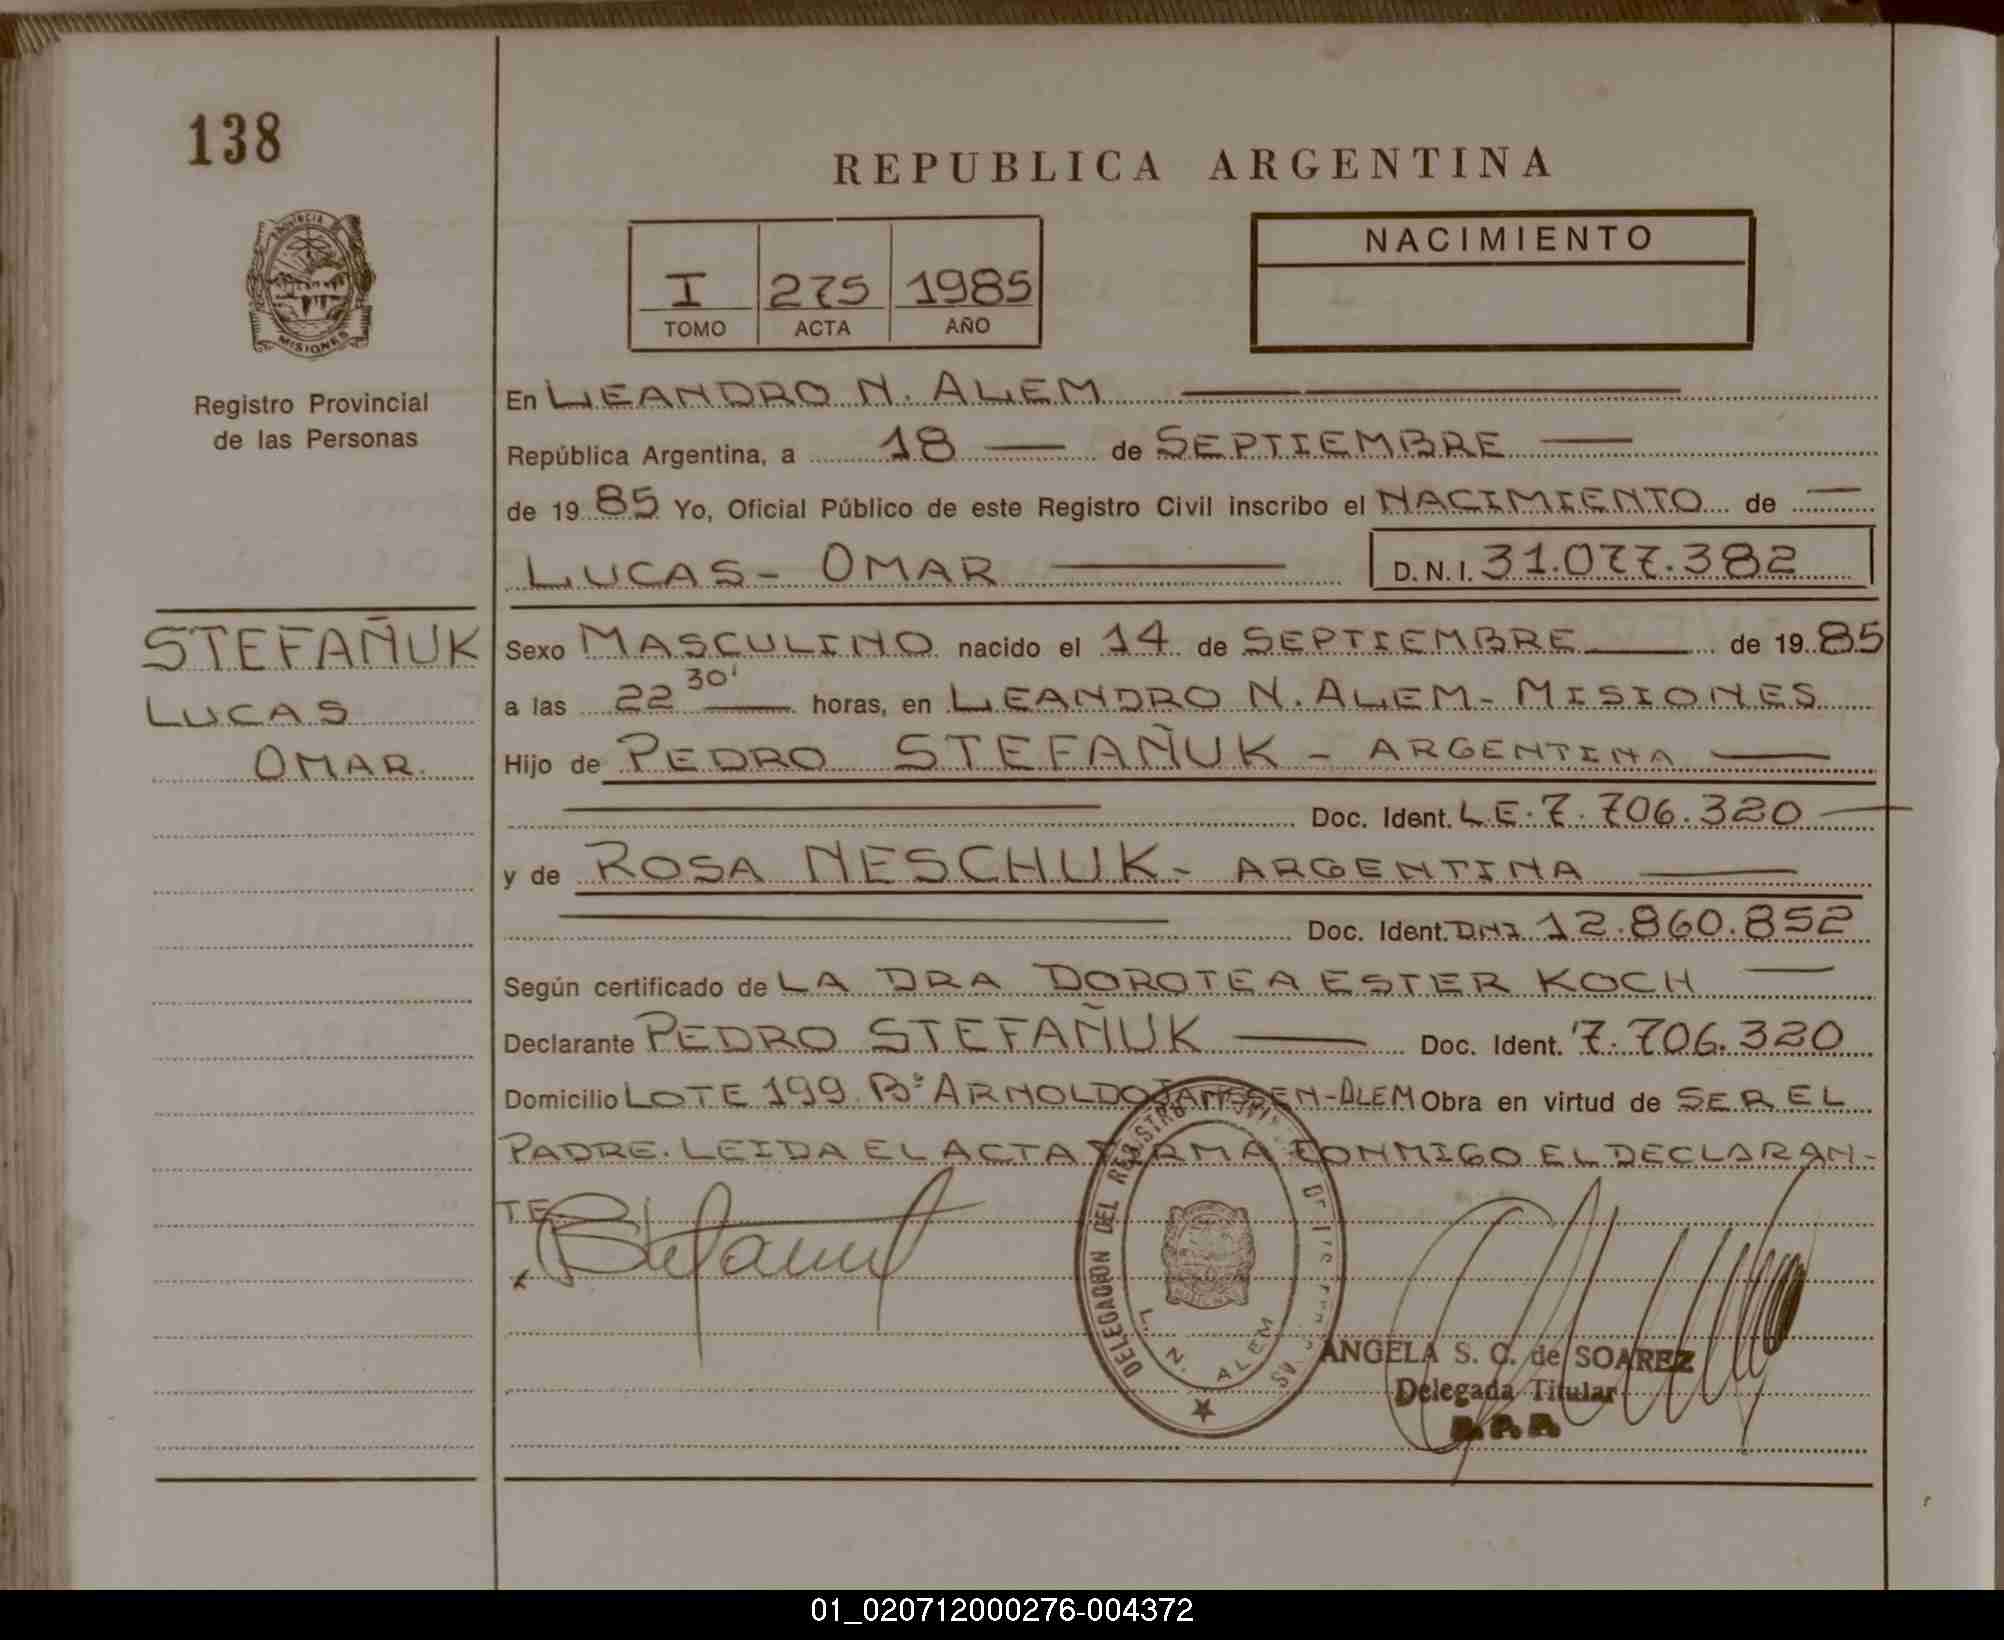 138
REPUBLICA ARGENTINA
PROVINCIA
MISIONES
Registro Provincial
de las Personas
I 275 1985
TOMO ACTA AÑO
NACIMIENTO
En LEANDRO N. ALEM
República Argentina, a 18 de SEPTIEMBRE
de 19 85 Yo, Oficial Público de este Registro Civil inscribo el NACIMIENTO de
LUCAS - OMAR D.N.I. 31.077.382
STEFAÑUK
LUCAS
OMAR.
Sexo MASCULINO nacido el 14 de SEPTIEMBRE de 19 85
a las 22 30' horas, en LEANDRO N. ALEM - MISIONES
Hijo de PEDRO STEFAÑUK - ARGENTINA
Doc. Ident. L.E. 7.706.320
y de ROSA NESCHUK - ARGENTINA
Doc. Ident. DNI 12.860.852
Según certificado de LA DRA DOROTEA ESTER KOCH
Declarante PEDRO STEFAÑUK Doc. Ident. 7.706.320
Domicilio LOTE 199 Bº ARNOLDO JANSSEN - ALEM Obra en virtud de SER EL
PADRE. LEIDA EL ACTA FIRMA CONMIGO EL DECLARAN-
TE
DELEGACION DEL REGISTRO
L. N. ALEM
ANGELA S. C. de SOAREZ
Delegada Titular
01_020712000276-004372